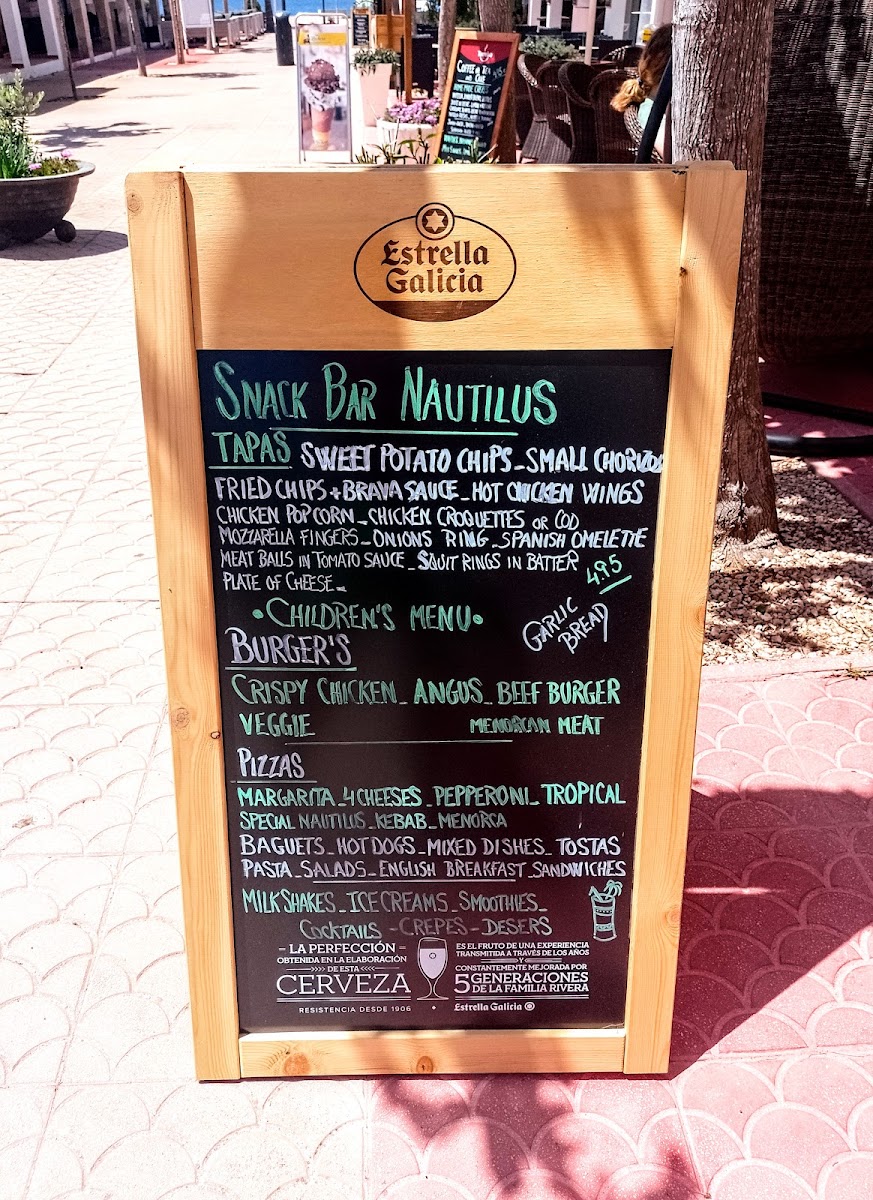 COFFEE or TEA
with CAKE
Estrella
Galicia
SNACK BAR NAUTILUS
TAPAS SWEET POTATO CHIPS_SMALL CHORIZOS
FRIED CHIPS+BRAVA SAUCE_HOT CHICKEN WINGS
CHICKEN POPCORN_CHICKEN CROQUETTES OR COD
MOZZARELLA FINGERS_ONIONS RING_SPANISH OMELETTE
MEAT BALLS IN TOMATO SAUCE_SQUIT RINGS IN BATTER
PLATE OF CHEESE_
4.95
•CHILDREN'S MENU•
GARLIC
BREAD
BURGER'S
CRISPY CHICKEN_ANGUS_BEEF BURGER
VEGGIE MENORCAN MEAT
PIZZAS
MARGARITA_4 CHEESES_PEPPERONI_TROPICAL
SPECIAL NAUTILUS_KEBAB_MENORCA
BAGUETS_HOT DOGS_MIXED DISHES_TOSTAS
PASTA_SALADS_ENGLISH BREAKFAST_SANDWICHES
MILKSHAKES_ICE CREAMS_SMOOTHIES_
COCKTAILS-CREPES-DESERS
- LA PERFECCIÓN -
OBTENIDA EN LA ELABORACIÓN
DE ESTA
CERVEZA
RESISTENCIA DESDE 1906
ES EL FRUTO DE UNA EXPERIENCIA
TRANSMITIDA A TRAVÉS DE LOS AÑOS
Y
CONSTANTEMENTE MEJORADA POR
5 GENERACIONES
DE LA FAMILIA RIVERA
Estrella Galicia